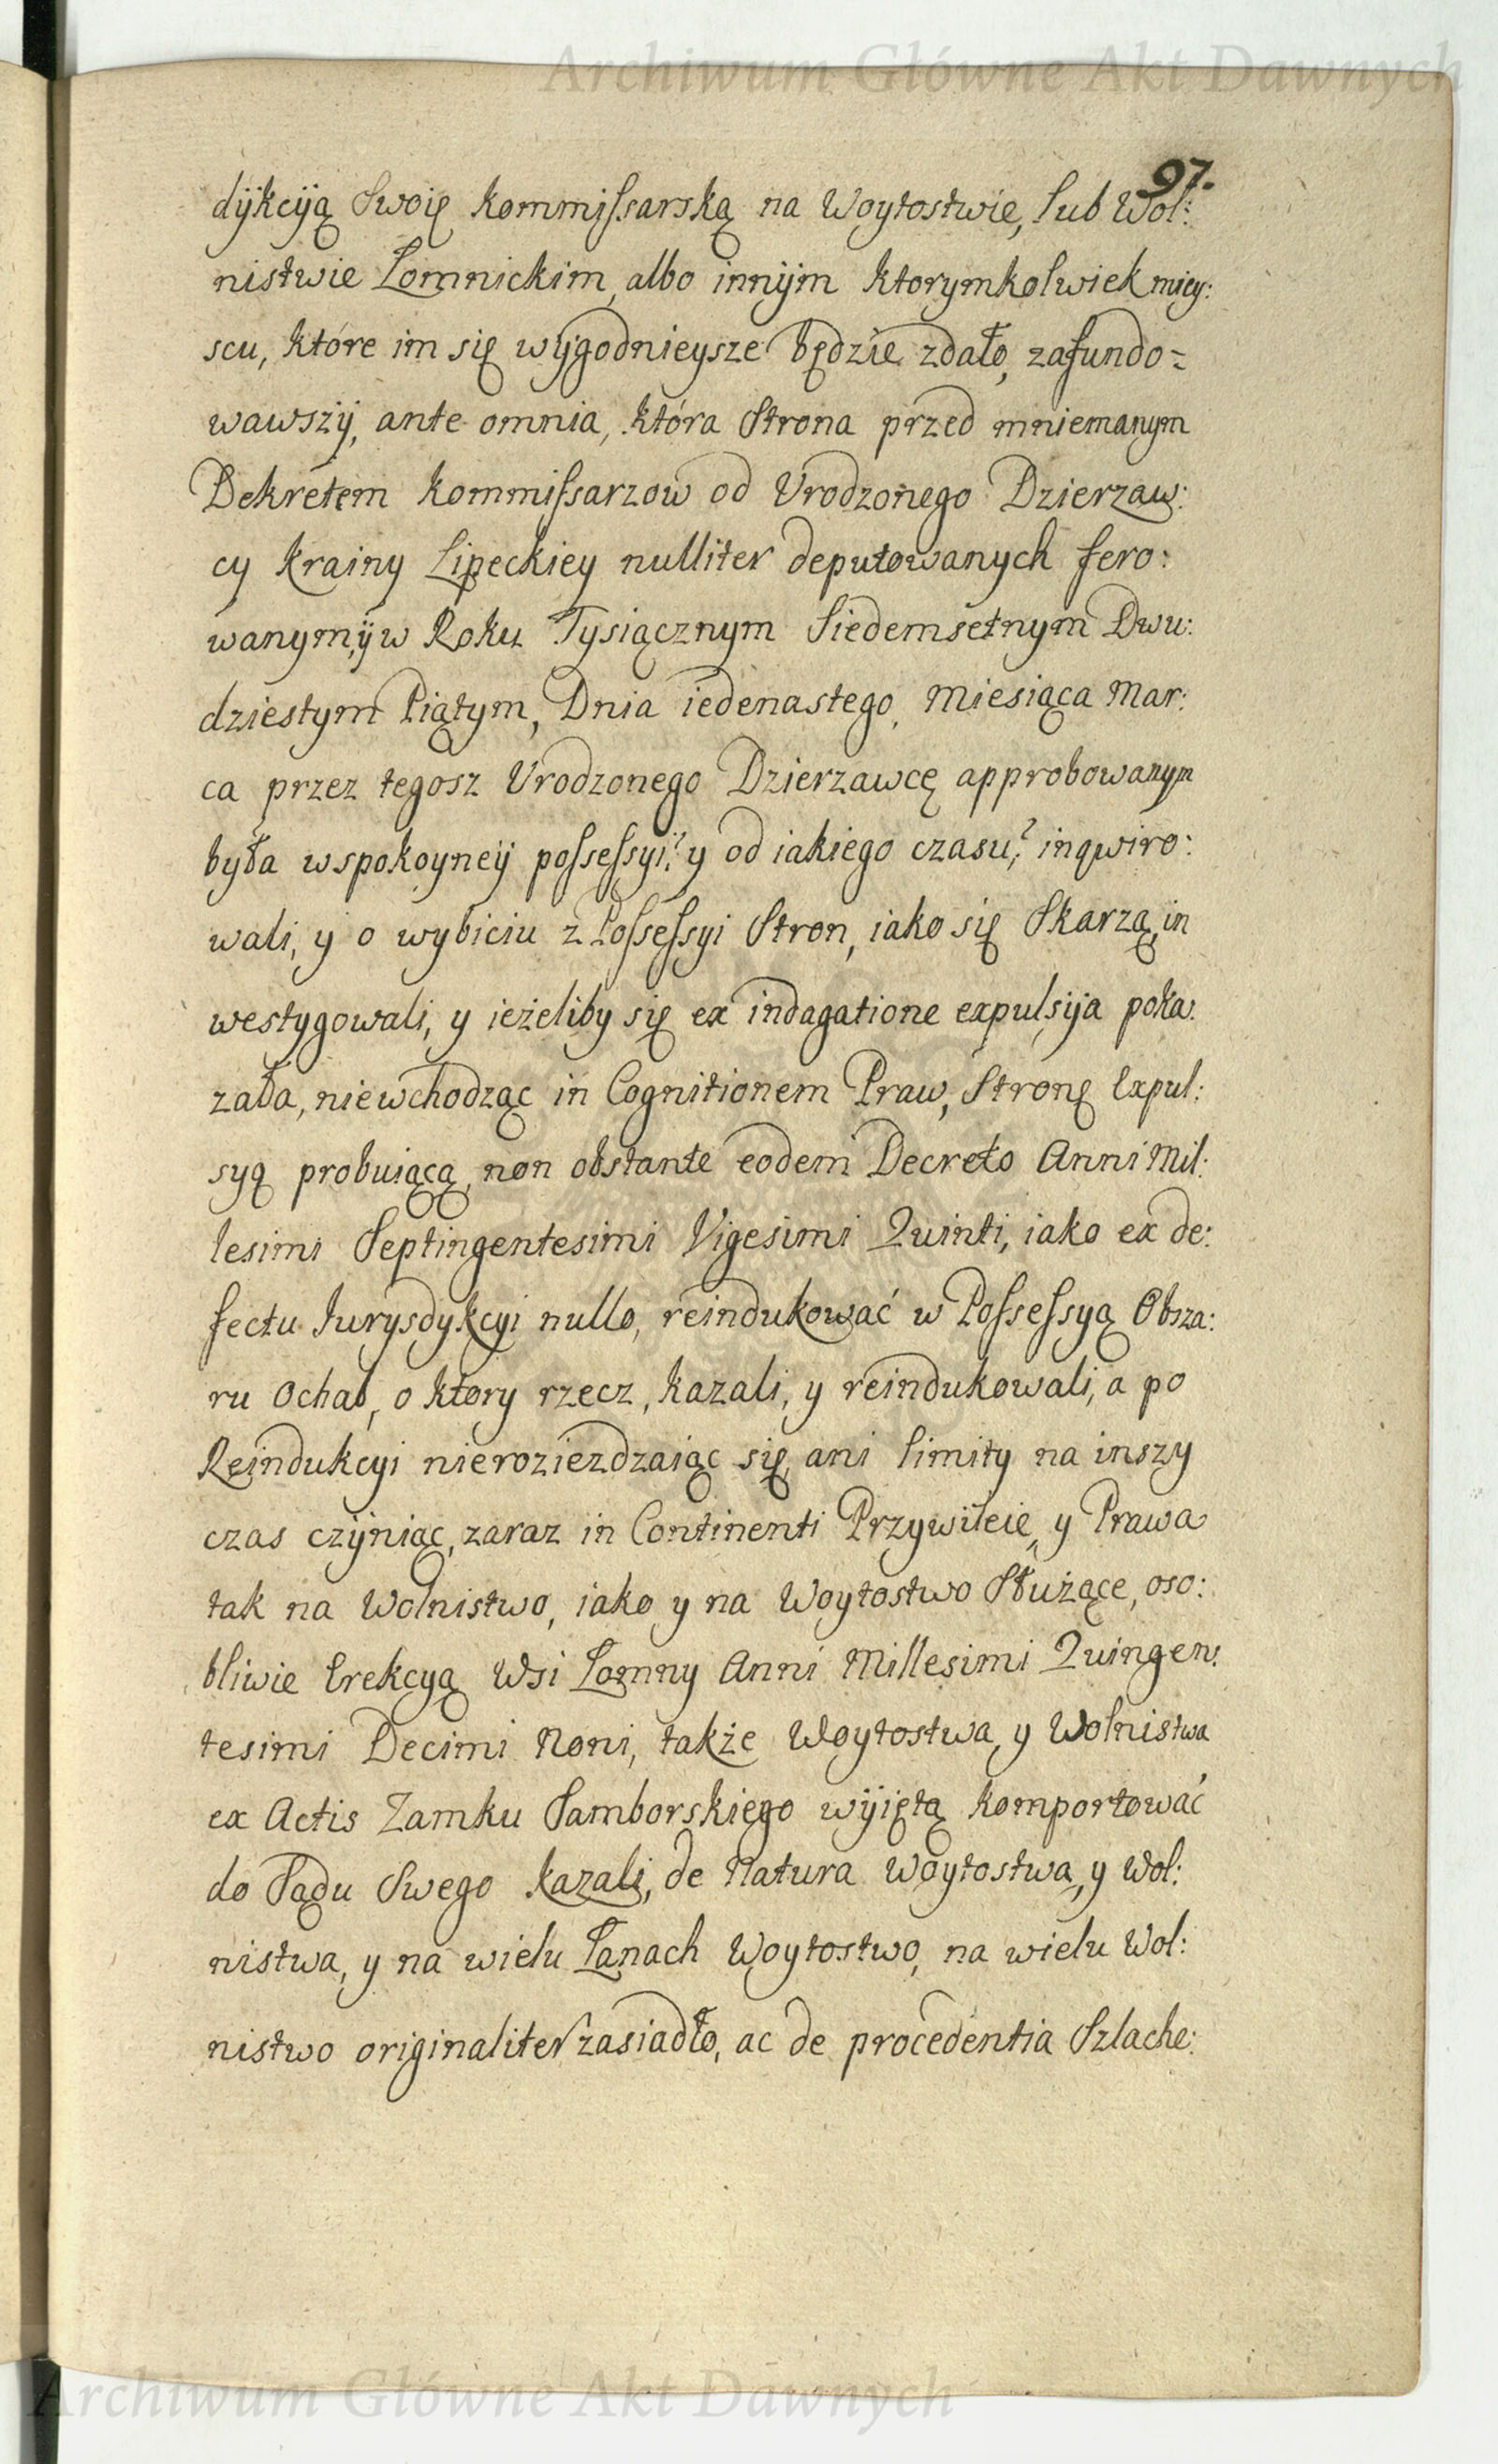 Archiwum Główne Akt Dawnych
97.
dÿkcÿą Swoię kommissarską na Woytostwie, lub Wol:
nistwie Łomnickim, albo innÿm ktorymkolwiek miey:
scu, które im się wÿgodnieysze będzie zdało, zafundo=
wawszÿ, ante omnia, która Strona przed mniemanym
Dekretem kommissarzow od Urodzonego Dzierzaw:
cy krainy Lipeckiey nulliter deputowanych fero:
wanym, ÿ w Roku Tysiącznym Siedemsetnym Dwu:
dziestym Piątym, Dnia iedenastego, Miesiąca Mar:
ca przez tegosz Urodzonego Dzierzawcę approbowanym
była w spokoyneÿ possessyi? y od iakiego czasu? inqwiro:
wali, y o wybiciu z Possessyi Stron, iako się Skarzą, in
westygowali, y ieżeliby się ex indagatione expulsÿa poka:
zała, niewchodząc in Cognitionem Praw, Stronę Expul:
syą probuiącą, non obstante eodem Decreto Anni Mil:
lesimi Septingentesimi Vigesimi Quinti, iako ex de:
fectu Jurysdykcyi nullo, reindukować w Possessyą Obsza:
ru Ochab, o ktory rzecz, kazali, y reindukowali, a po
Reindukcyi nierozieżdzaiąc się, ani limity na inszy
czas czÿniąc, zaraz in Continenti Przywileie, y Prawa
tak na Wolnistwo, iako y na Woytostwo Służące, oso:
bliwie Erekcyą Wsi Łomny Anni Millesimi Quingen:
tesimi Decimi Noni, także Woytostwa, y Wolnistwa
ex Actis Zamku Samborskiego wÿiętą komportować
do Sądu Swego kazali, de Natura Woytostwa, y Wol:
nistwa, y na wielu Łanach Woytostwo, na wielu Wol:
nistwo originaliter zasiadło, ac de procedentia Szlache:
Archiwum Główne Akt Dawnych